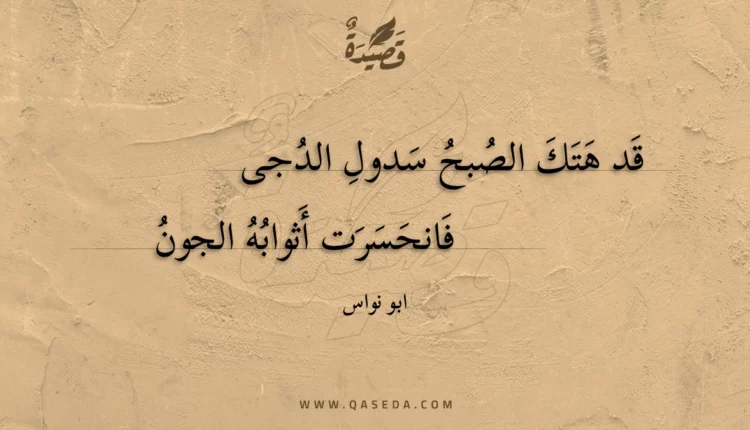 قَصِيدَةٌ
قَد هَتَكَ الصُبحُ سَدولِ الدُجى
فَانحَسَرَت أَثوابُهُ الجونُ
ابو نواس
WWW.QASEDA.COM